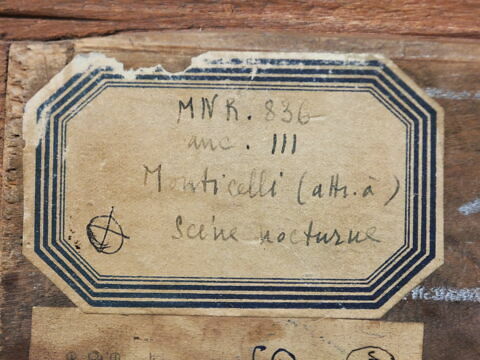 MNR. 836
anc. III
Monticelli (attr. à)
Scène nocturne